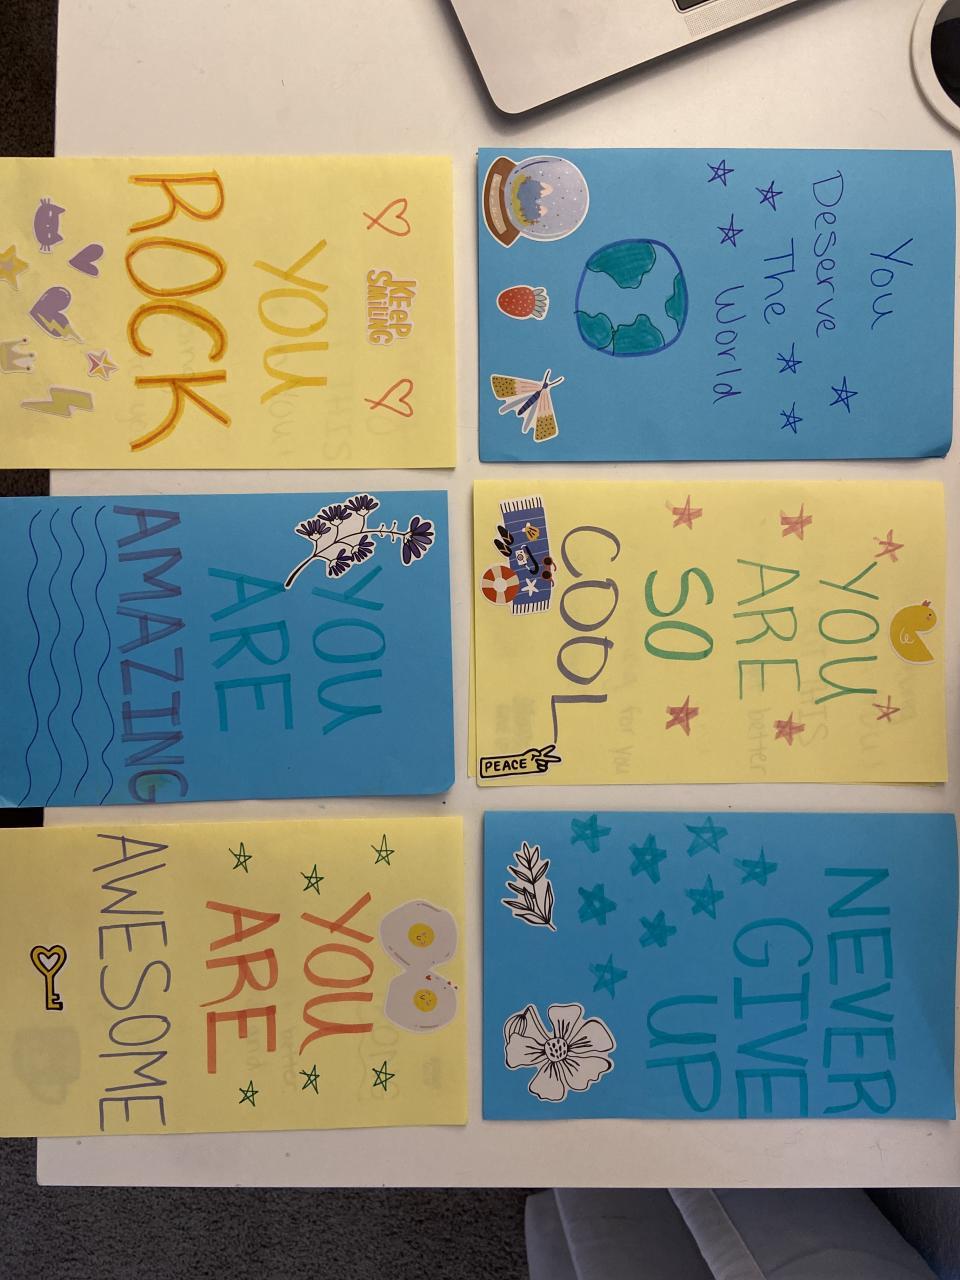 You
Deserve
The
World
YOU
ARE
SO
COOL
PEACE
NEVER
GIVE
UP
KEEP
SMILING
YOU
ROCK
YOU
ARE
AMAZING
YOU
ARE
AWESOME